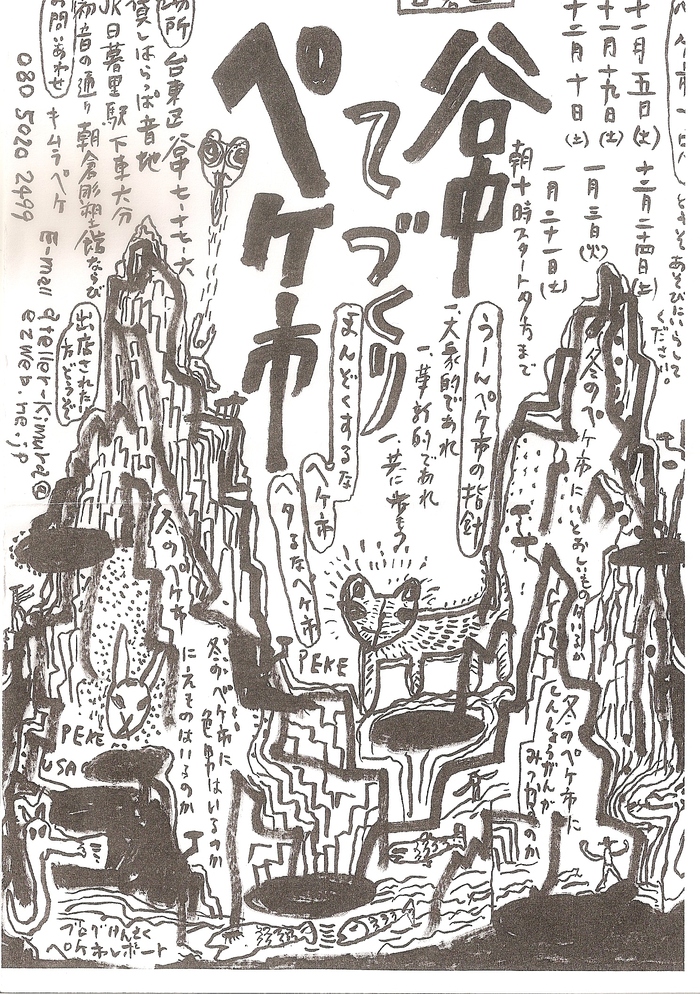 ようこそあそびにいらして
ください。
十一月五日(土)
十一月十九日(土)
十二月十日(土)
十二月二十四日(土)
一月三日(火)
一月二十一日(土)
朝十時スタート夕方まで
谷中
てづくり
ペケ市
うーんペケ市の指針
一、大衆的であれ
一、革新的であれ
一、共に歩もう
まんぞくするな
ペケ市
ヘタるなペケ市
場所
台東区谷中七-十七-六
僕らはらっぱ音地
JR日暮里駅下車六分
初音の通り朝倉彫塑館ならび
お問いあわせ
キムラペケ
E-mail
ezweb.ne.jp
080 5020 2499
出店されたい
方どうぞ
冬のペケ市にいとおしいものがいるか
冬のペケ市に
みつかるのか
冬のペケ市
にえものはいるのか
冬のペケ市に
PEKE
PEKE
USA
ブログけんさく
ペケネレポート